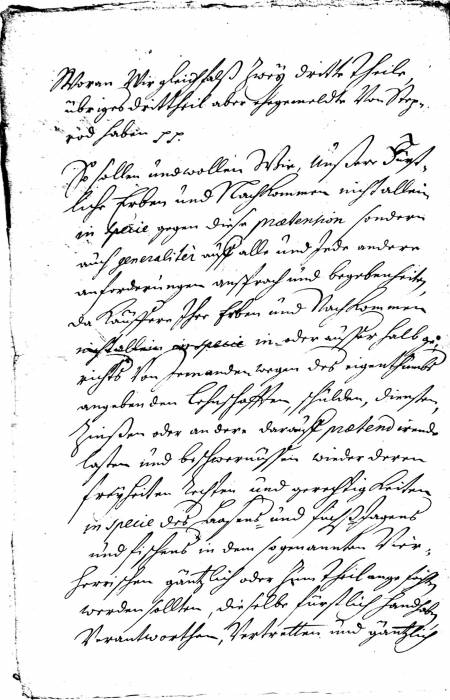 Woran Wir gleichfalß Zweÿ dritte Theile,
übriges drittheil aber ehegemeldte Von Step-
röd haben pp.
So sollen und wollen Wir, Unßere Fürst-
liche Erben und Nachkommen nicht allein
in specie gegen diese prætension sondern
auch generaliter auff alle und Jede andere
anforderungen ansprach und begebenheiten,
da Käuffere Ihre Erben und Nachkommen
nicht allein in specie in- oder ausser halb ge-
richts Von Jemanden wegen des eigenthumbs
angebenden Lehnschafften, schulden, diensten,
Zinßen oder andere darauff prætendirende
lasten und beschwernussen wieder deren
freÿheiten rechten und gerechtig Keiten
in specie des Haasens- und fuchsjagens
und fischens in dem sogenannten Vier-
herrischen gäntzlich oder zum Theil angefochten
werden sollten, dieselbe fürstlich handhaben
Verantworthen, Vertretten und gäntzlich